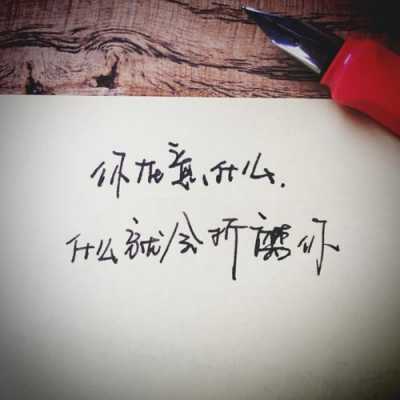 你在意什么.
什么就会折磨你